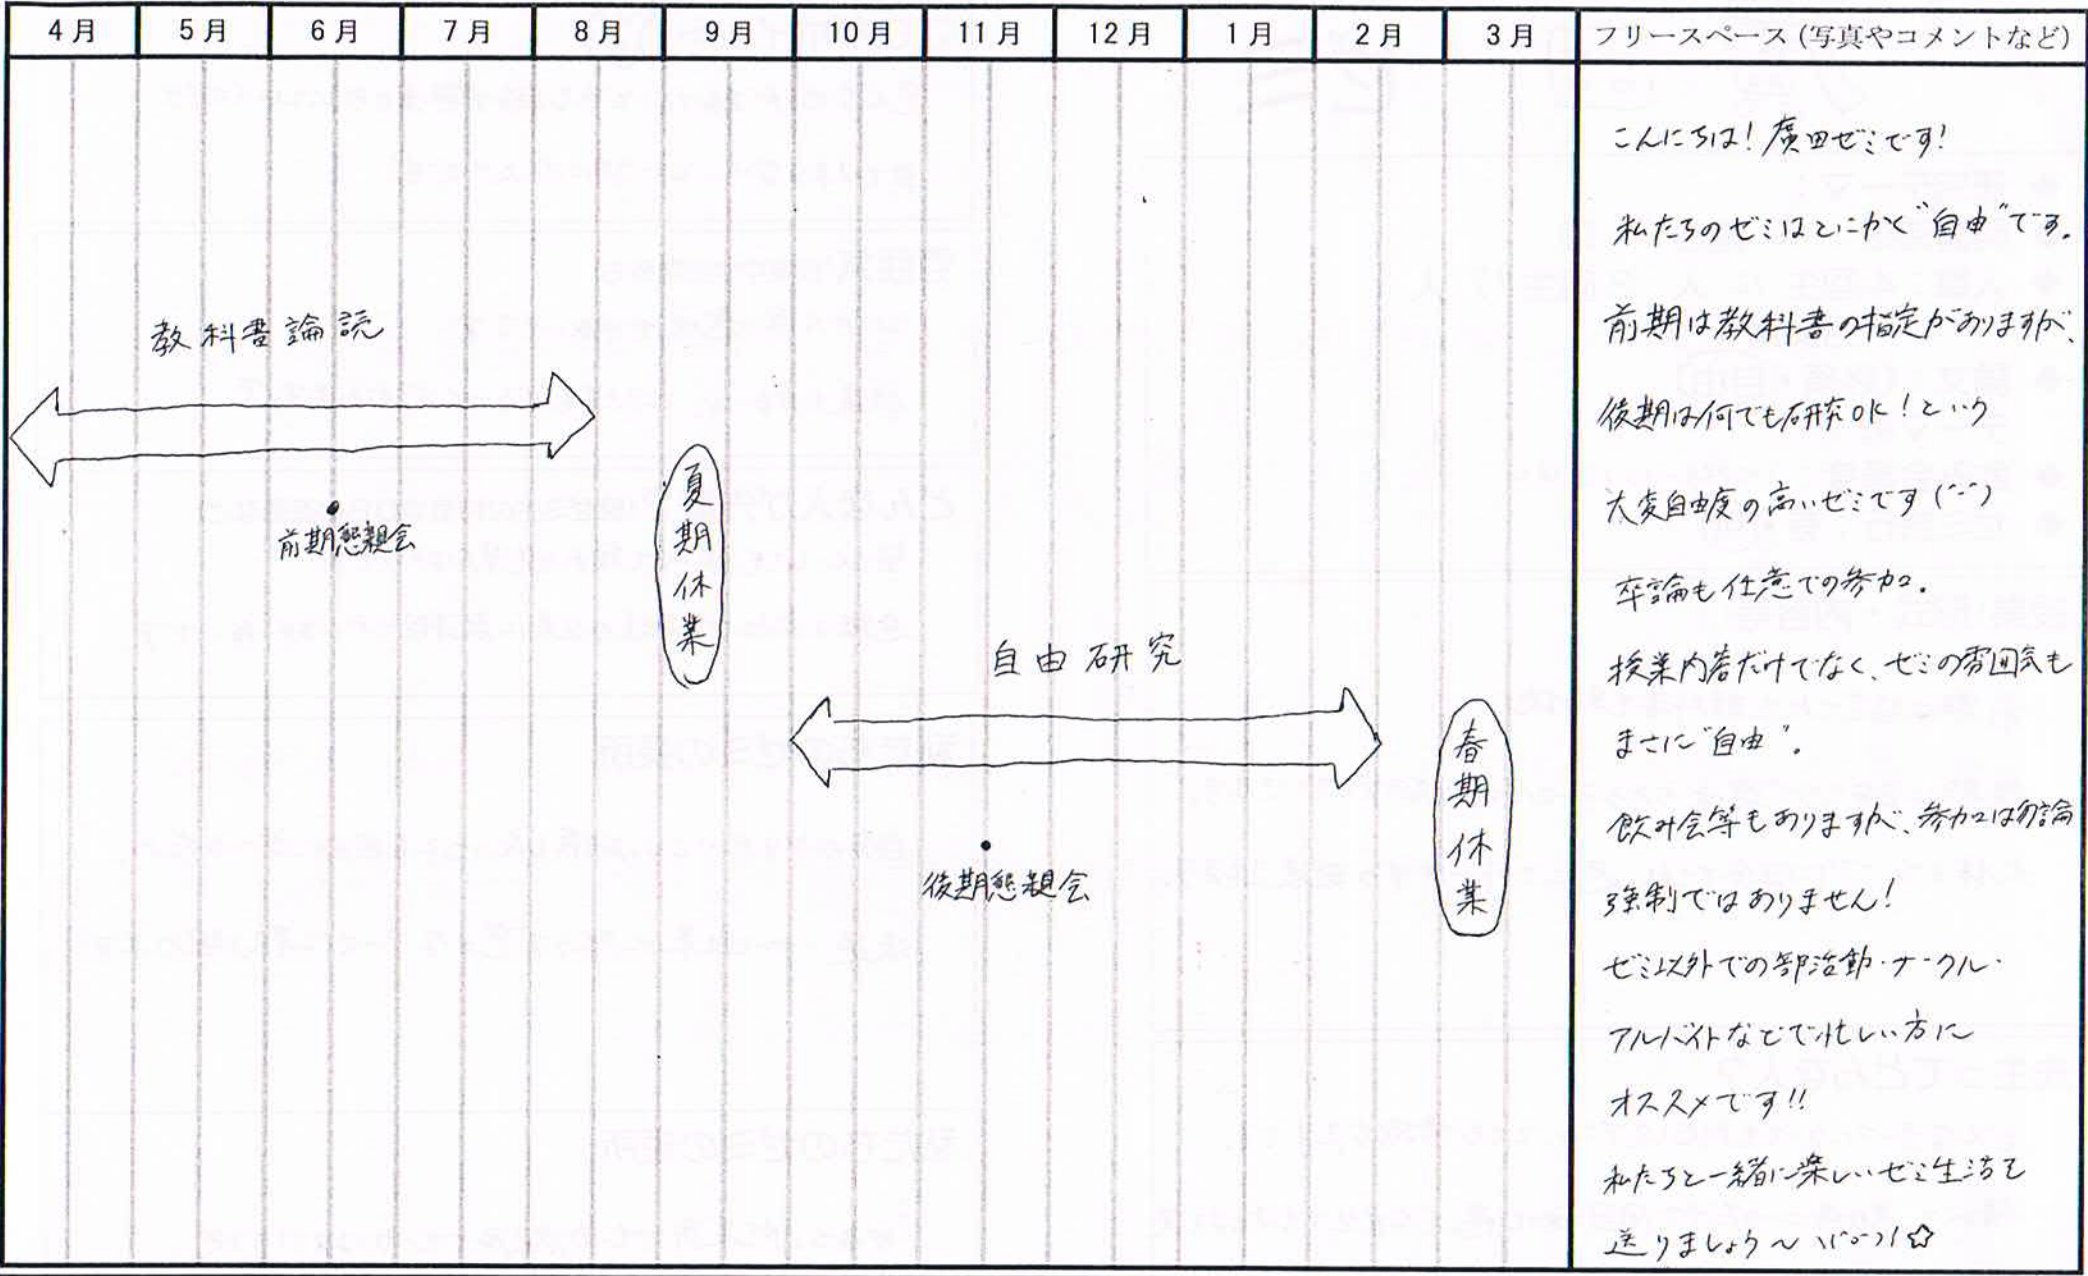 4月 5月 6月 7月 8月 9月 10月 11月 12月 1月 2月 3月 フリースペース（写真やコメントなど）
教科書論読
前期懇親会
夏期休業
自由研究
後期懇親会
春期休業
こんにちは！廣田ゼミです！
私たちのゼミはとにかく"自由"です。
前期は教科書の指定がありますが、
後期は何でも研究OK！という
大変自由度の高いゼミです(^-^)
卒論も任意での参加。
授業内容だけでなく、ゼミの雰囲気も
まさに"自由"。
飲み会等もありますが、参加は勿論
強制ではありません！
ゼミ以外での部活動・サークル・
アルバイトなどで忙しい方に
オススメです!!
私たちと一緒に楽しいゼミ生活を
送りましょう〜 \(^o^)/☆